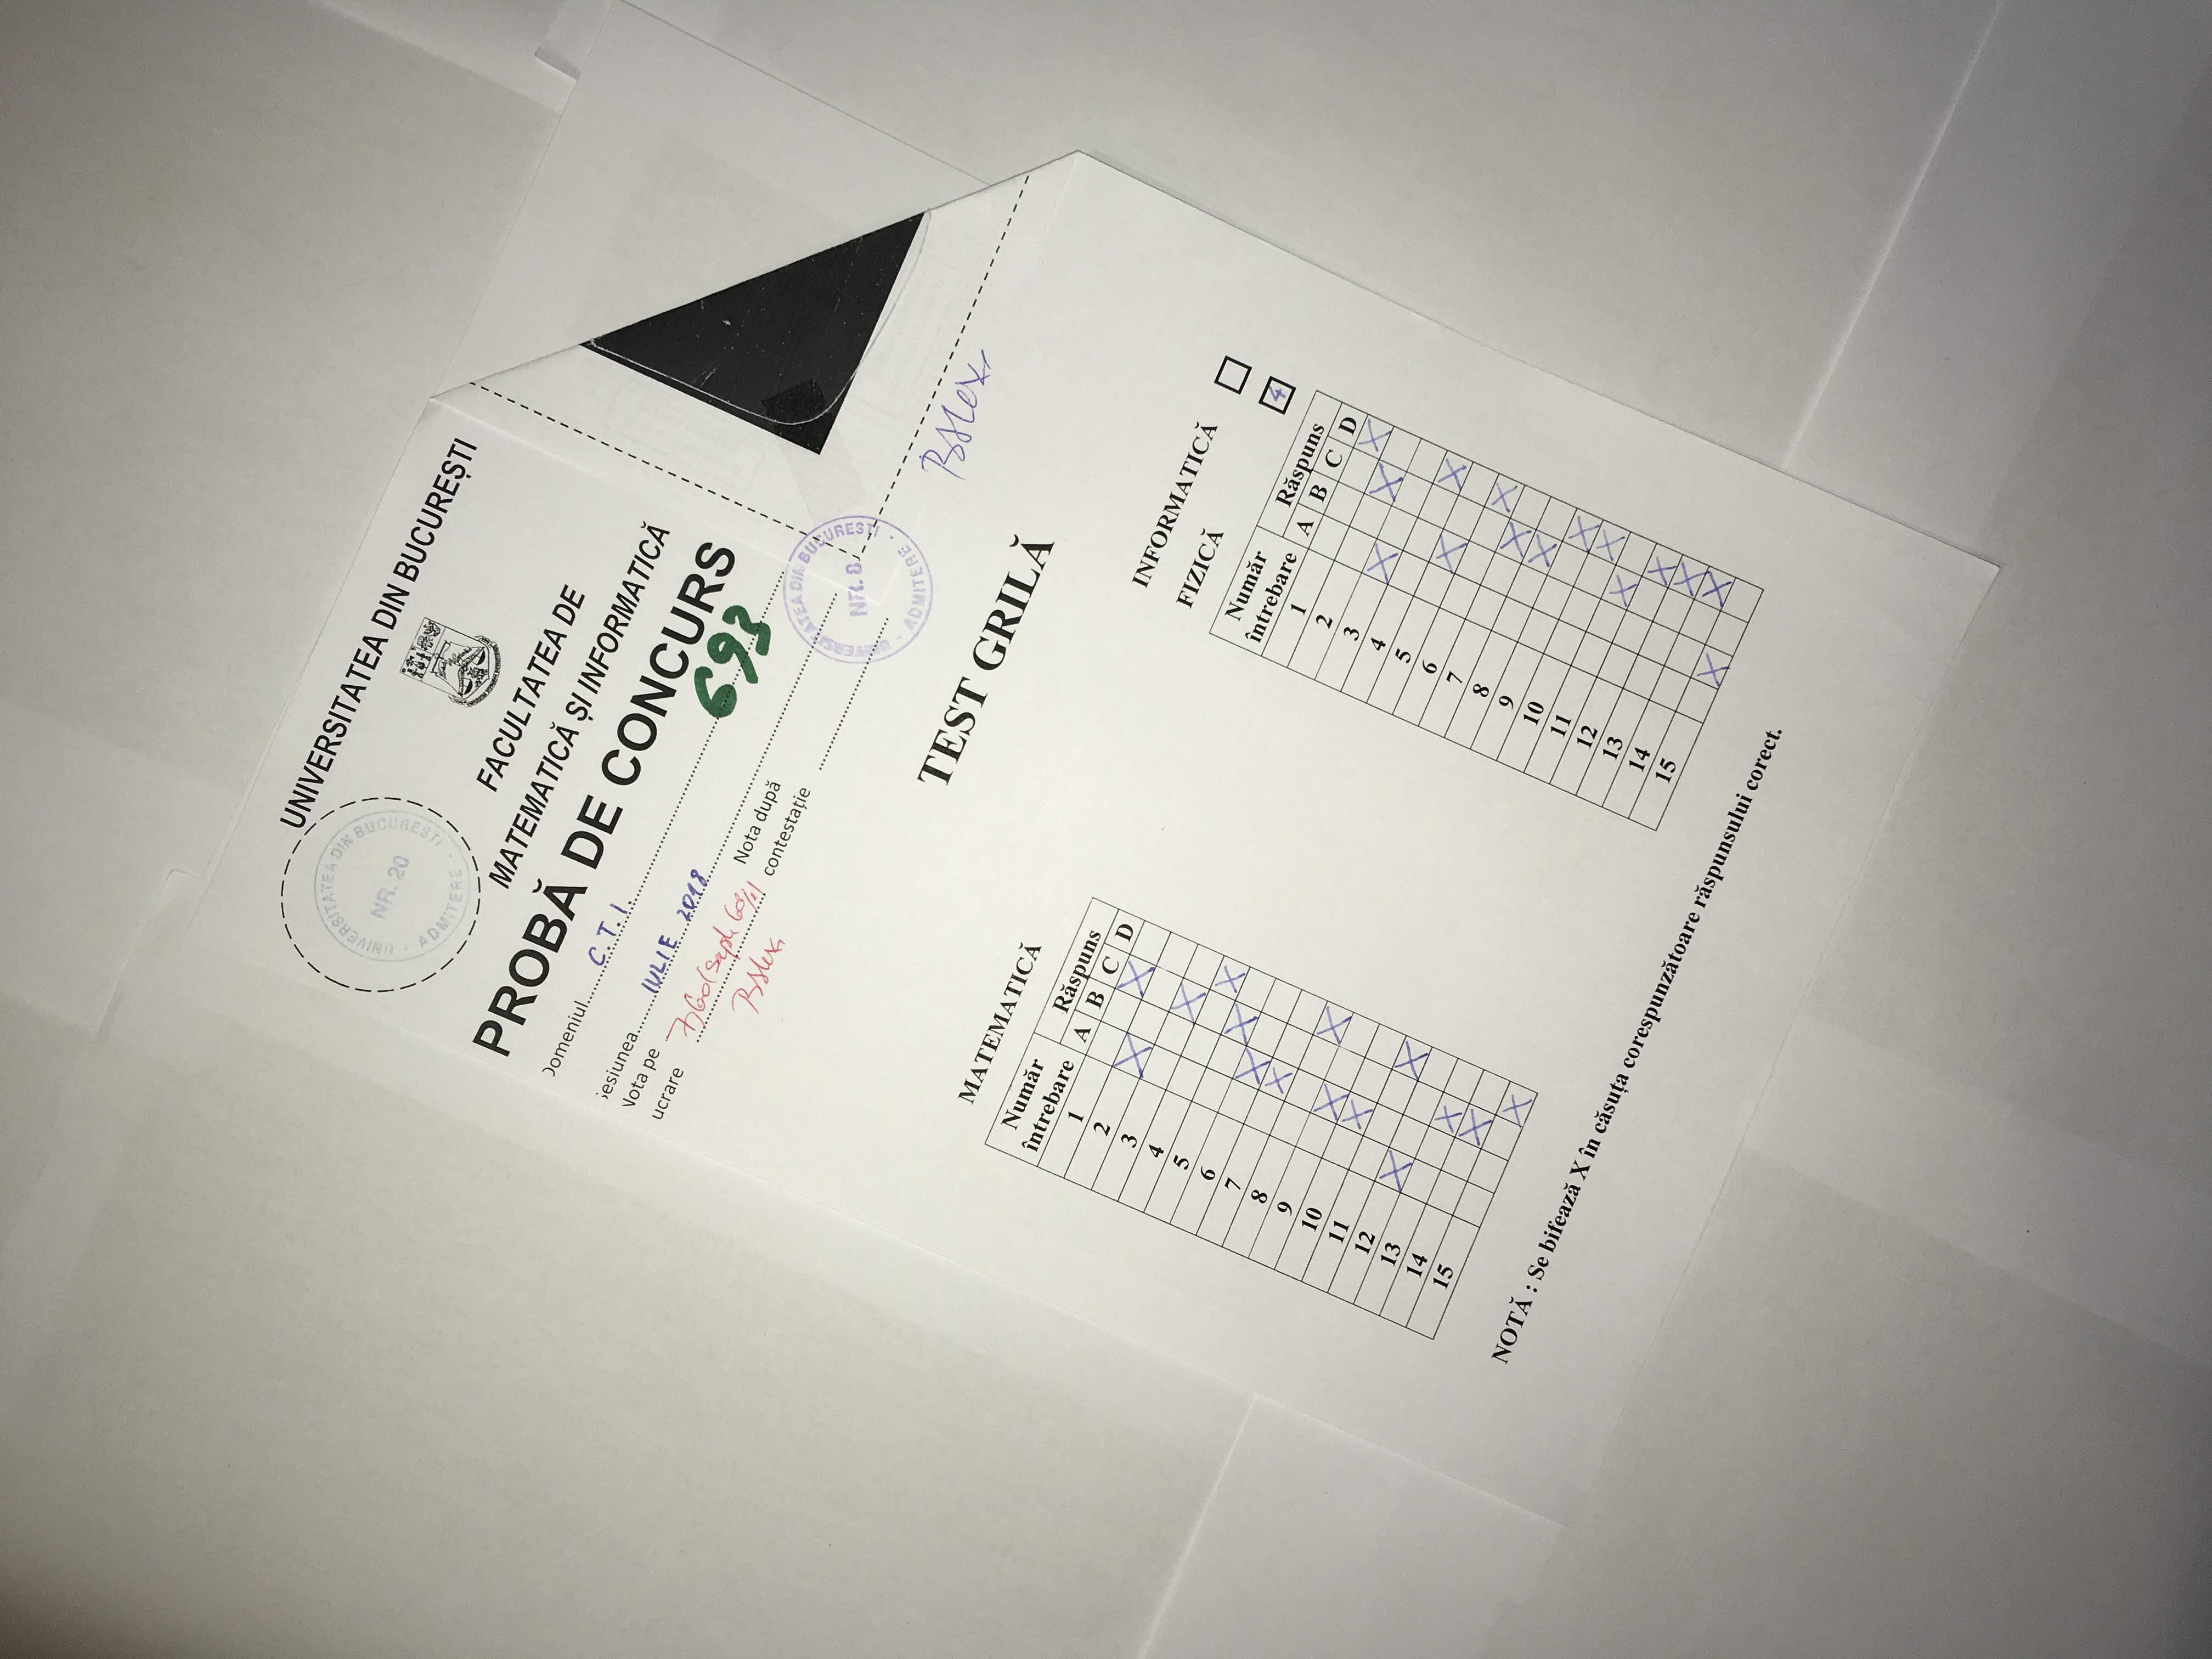 UNIVERSITATEA DIN BUCUREȘTI
UNIVERSITATEA DIN BUCUREȘTI
NR. 20
ADMITERE
FACULTATEA DE
MATEMATICĂ ȘI INFORMATICĂ
PROBĂ DE CONCURS
Domeniul C.T.I.
693
Sesiunea IULIE 2018
Nota pe
lucrare 7,60
Nota după
contestație
UNIVERSITATEA DIN BUCUREȘTI
NR. 8
ADMITERE
TEST GRILĂ
MATEMATICĂ
Număr întrebare Răspuns
A B C D
1 X
2 X
3 X
4 X
5 X
6 X
7 X
8 X
9 X
10 X
11 X
12 X
13 X
14 X
15 X
INFORMATICĂ
FIZICĂ
Număr întrebare Răspuns
A B C D
1 X
2 X
3 X
4 X
5 X
6 X
7 X
8 X
9 X
10 X
11 X
12 X
13 X
14 X
15 X
NOTĂ : Se bifează X în căsuța corespunzătoare răspunsului corect.